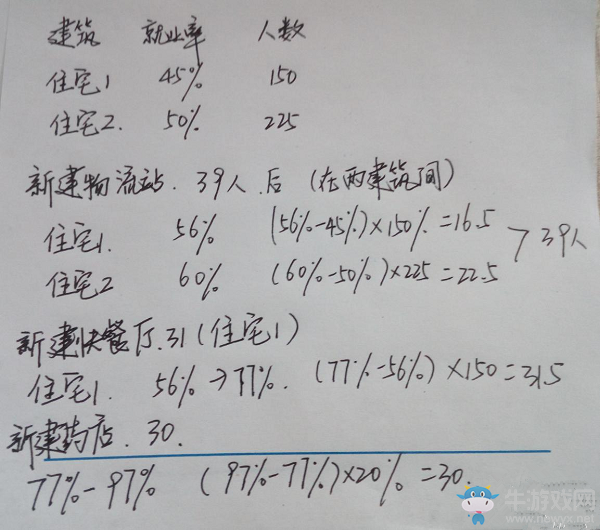 建筑 就业率 人数
住宅1 45% 150
住宅2. 50% 225
新建物流站. 39人 后 (在两建筑间)
住宅1. 56% (56%-45%)×150%=16.5
住宅2 60% (60%-50%)×225=22.5
> 39人
新建快餐厅. 31 (住宅1)
住宅1. 56%→77%. (77%-56%)×150=31.5
新建药店. 30.
77%-97% (97%-77%)×20%=30.
牛游戏网
www.newyx.net